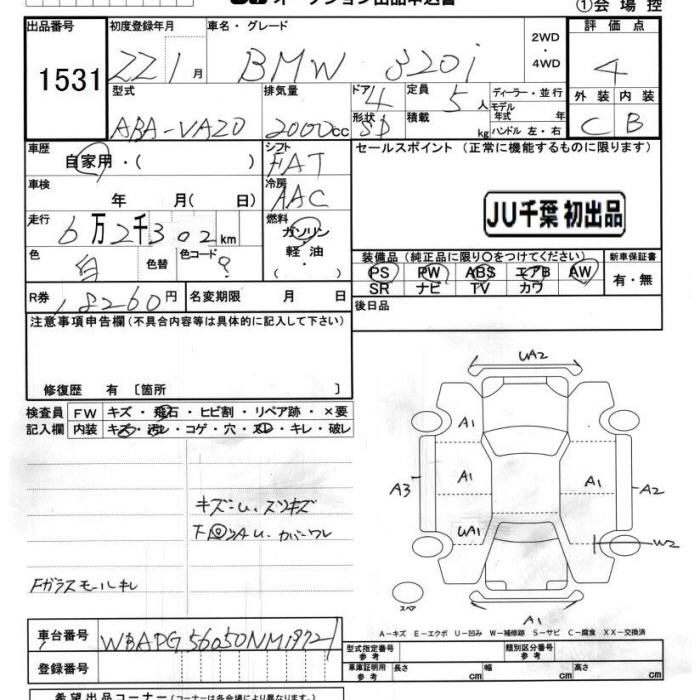 オークション出品申込書 ①会場控
出品番号 初度登録年月 車名・グレード 2WD 評価点
1531 22 1月 BMW 320i ・4WD 4
型式 排気量 ドア 4 定員 5人 ディーラー・並行 外装 内装
ABA-VA20 2000cc 形状 SD 積載 kg モデル年式 年 ハンドル 左・右 C B
車歴 シフト セールスポイント (正常に機能するものに限ります)
自家用・( ) FAT
車検 冷房
年 月( 日) AAC JU千葉 初出品
走行 燃料
6万2千302km ガソリン
色 色替 色コード 軽油 装備品 (純正品に限り○をつけてください) 新車保証書
白 ? ( ) PS PW ABS エアB AW 有・無
R券 名変期限 月 日 SR ナビ TV カワ
18260円 後日品
注意事項申告欄 (不具合内容等は具体的に記入して下さい)
修復歴 有 〔箇所 〕
検査員 FW キズ・飛石・ヒビ割・リペア跡・×要
記入欄 内装 キズ・汚レ・コゲ・穴・スレ・キレ・破レ
UA2
A1
A3 A1 A1 A2
キズ・U、スリキズ
UA1 W2
Fガラスモールキレ
スペア
A1
A-キズ E-エクボ U-凹み W-補修跡 S-サビ C-腐食 XX-交換済
車台番号 WBAPG56050NM1972 型式指定番号 参考 類別区分番号 参考
登録番号 車庫証明用 参考 長さ cm 幅 cm 高さ cm
希望出品コーナー (コーナーは各会場により異なります。)